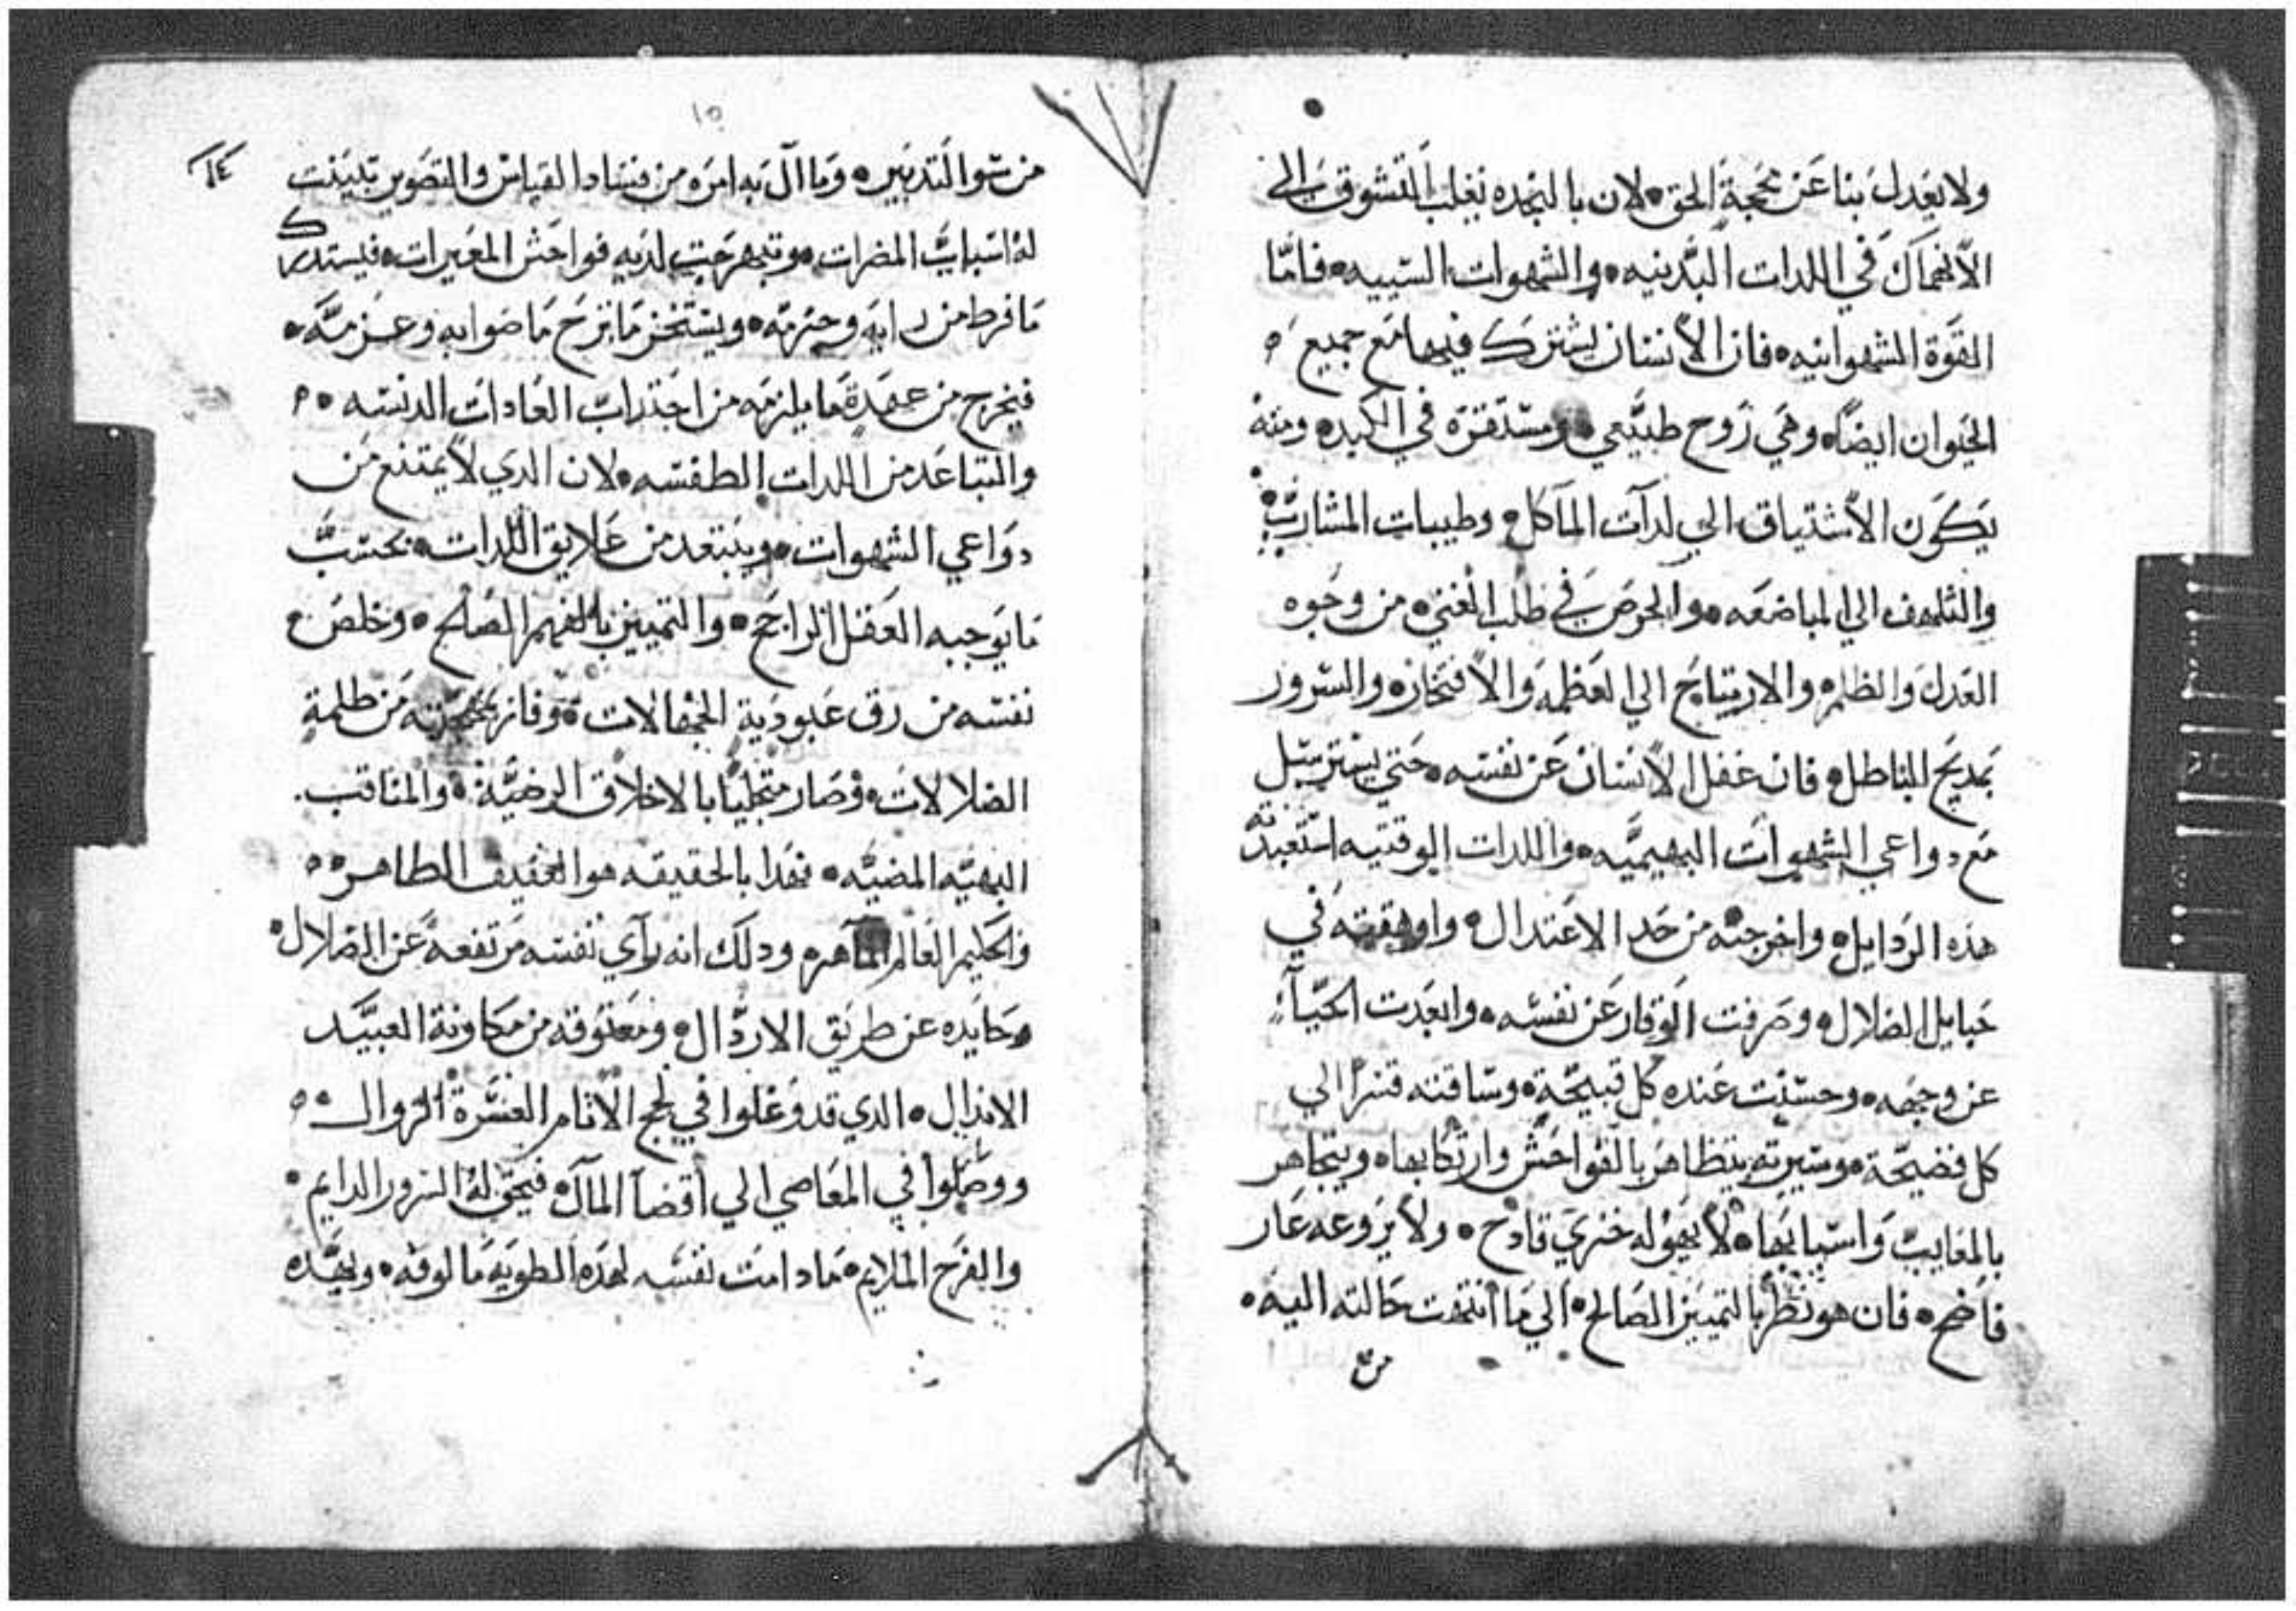 ولا يعدل بنا عن محجة الحق • لان بالنجده نغلب التشوق الي
الأنهماك في اللدات البدنيه • والشهوات السيبيه • فامّا
القوة الشهوانيه • فان الأنسان يشترك فيها مع جميع
الحيوان ايضاً • وهي روح طبيعي • ومستقرة في الكبد • ومنه
يكون الأشتياق الي لدآت المآكل • وطيبات المشارب •
والتلهف الي المباضعه • والحرص في طلب الغني • من وجوه
العدل والظلم • والارتياح الي العظمه والأفتخار • والسرور
بمديح الباطل • فان غفل الأنسان عن نفسه • حتي يسترسل
مع دواعي الشهوات البهيميه • واللدات الوقتيه استعبدته
هذه الردايل • واخرجته من حد الاعتدال • واوهقته في
حبايل الضلال • وصرفت الوقار عن نفسه • وابعدت الحيآء
عن وجهه • وحسنت عنده كل قبيحة • وساقته قسراً الي
كل فضيحة • وسيرته يتظاهر بالفواحش وارتكابها • ويتجاهر
بالمعايب واسبابها • لا يهوله خزي قادح • ولا يروعه عار
فاضح • فان هو نظر بالتمييز الصالح • الي ما أنتهت حالته اليه •
من
١٥
١٤
من سو التدبير • وما آل به امره من فساد القياس والتصوير تبينت
له اسباب المضرات • وتبهرجت لديه فواحش المعيرات • فيستدرك
ما فرط من رايه وحزمه • ويستخز ما نزح ما صوابه وعزمه •
فيخرج من عهدة ما يلزمه من اجتداب العادات الدنسه •
والتباعد من اللدات الطفسه • لان الدي لا يمتنع من
دواعي الشهوات • ويبتعد من علايق اللدات • بحسب
ما يوجبه العقل الراجح • والتمييز بالفهم الصالح • وخلص
نفسه من رق عبودية الجهالات • وفاز من ظلمة
الضلالات • وصار متجليًا بالاخلاق الرضيّة • والمناقب
البهيّه المضيّه • فهدا بالحقيقه هو العفيف الطاهر •
والحكيم العالم الماهر • ودلك انه رآي نفسه مرتفعه عن الضلال •
وحايده عن طريق الاردال • ومعتوقه من مكاونة العبيد
الاندال • الدي قد وغلوا في لجج الأثام العسرة الزوال •
ووصلوا في المعاصي الي أقصا المآل • فيحق له السرور الدايم •
والفرح الملايم • ما دامت نفسه لهده الطويه مالوفه • وبهده